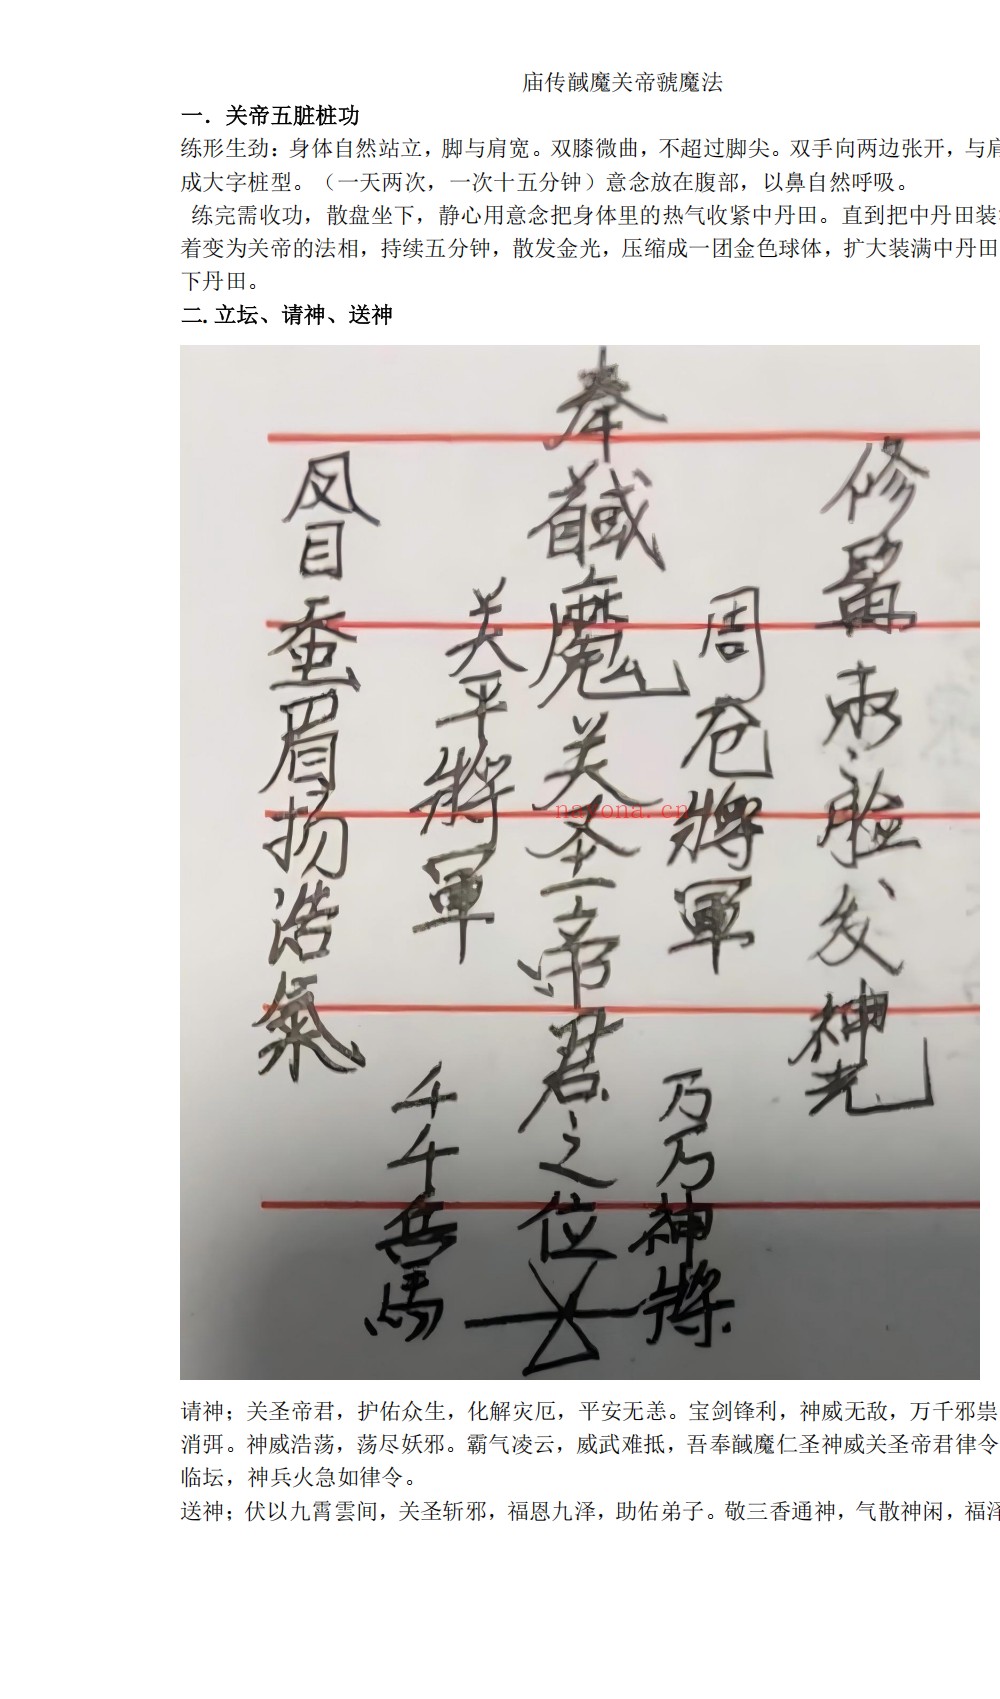 庙传馘魔关帝虢魔法
一．关帝五脏桩功
练形生劲：身体自然站立，脚与肩宽。双膝微曲，不超过脚尖。双手向两边张开，与肩
成大字桩型。（一天两次，一次十五分钟）意念放在腹部，以鼻自然呼吸。
练完需收功，散盘坐下，静心用意念把身体里的热气收紧中丹田。直到把中丹田装
着变为关帝的法相，持续五分钟，散发金光，压缩成一团金色球体，扩大装满中丹田
下丹田。
二. 立坛、请神、送神
修髯赤脸发神光
周仓将軍
万万神將
奉馘魔关圣帝君之位
关平將軍
千千兵馬
凤目蚕眉扬浩氣
nayona.cn
请神；关圣帝君，护佑众生，化解灾厄，平安无恙。宝剑锋利，神威无敌，万千邪祟
消弭。神威浩荡，荡尽妖邪。霸气凌云，威武难抵，吾奉馘魔仁圣神威关圣帝君律令
临坛，神兵火急如律令。
送神；伏以九霄雲间，关圣斩邪，福恩九泽，助佑弟子。敬三香通神，气散神闲，福泽